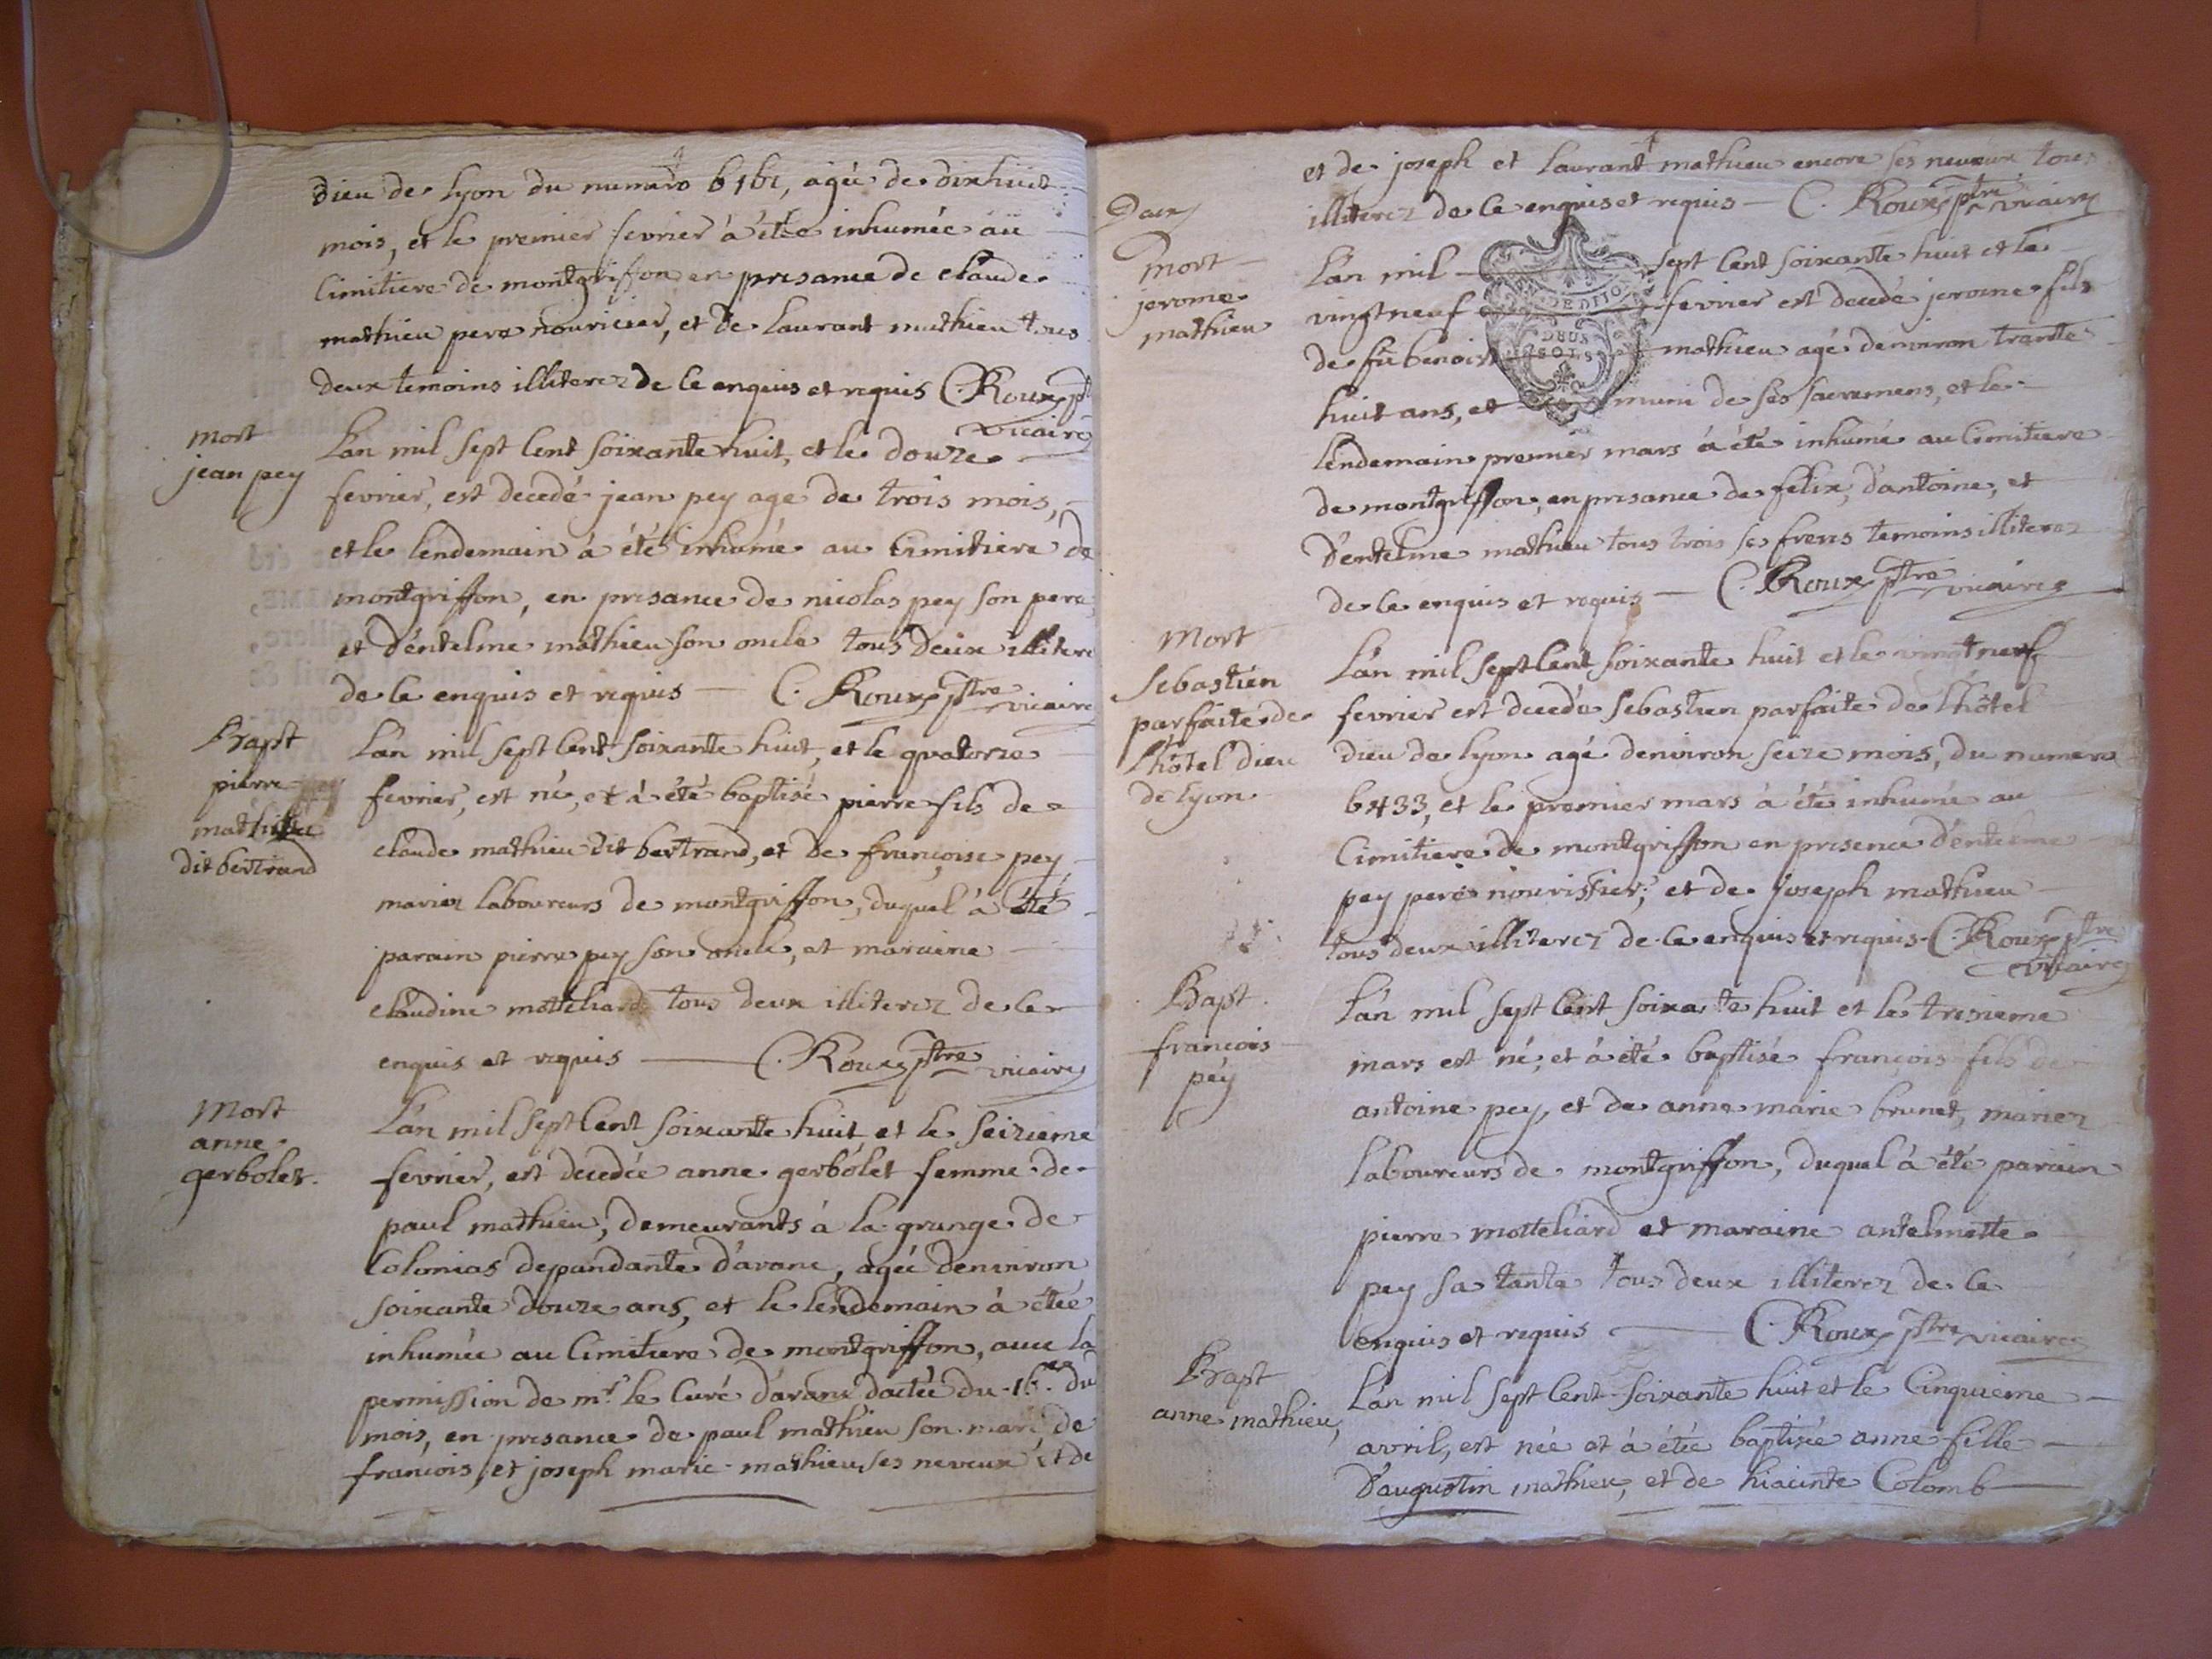 Dieu de lyon du numero 6161, agée de dixhuit
mois, et le premier fevrier à étée inhumée au
Cimitiere de montgriffon en presance de claude
mathieu pere nouricier, et de laurant mathieu tous
deux temoins illiterez de ce enquis et requis C. Roux ptre
vicaire
mort
jean pey
L'an mil sept cent soixante huit, et le douze
fevrier, est decedé jean pey age de trois mois,
et le lendemain à été inhumé au Cimitiere de
montgriffon, en presance de nicolas pey son pere
et d'éntelme mathieu son oncle tous deux illitere
de ce enquis et requis — C. Roux ptre vicaire
Bapt
pierre
mathieu
dit bertrand
L'an mil sept cent soixante huit, et le quatorze
fevrier, est né, et à été baptisé pierre fils de
claude mathieu dit bertrand, et de françoise pey
mariez laboureurs de montgriffon, duquel à été
parain pierre pey son oncle, et maraine
claudine motteliard tous deux illiterez de ce
enquis et requis — C. Roux ptre vicaire
Mort
anne
gerbolet.
L'an mil sept cent soixante huit et le seizieme
fevrier, est decedée anne gerbolet femme de
paul mathieu, demeurants à la grange de
Colonias depandante d'aranc, agée denviron
soixante douze ans, et le lendemain à étée
inhumée au Cimitiere de montgriffon, avec la
permission de mr. le Curé d'aranc dactée du 16. du
mois, en presance de paul mathieu son mari de
francois, et joseph marie mathieu ses neveux et de
et de joseph et laurant mathieu encore ses neveux tous
illiterez de ce enquis et requis — C. Roux ptre vicaire
mort
jerome
mathieu
L'an mil sept cent soixante huit et le
vingt neuf fevrier est decedé jerome fils
de fû benoist mathieu agé denviron trante
huit ans, et muni de ses sacremens, et le
lendemain premier mars à été inhumé au Cimitiere
de montgriffon, en presance de felix, d'antoine, et
d'entelme mathieu tous trois ses freres temoins illiterez
de ce enquis et requis — C. Roux ptre vicaire
DEUX
SOLS
Mort
Sebastien
parfaite de
l'hôtel dieu
de lyon
L'an mil sept cent soixante huit et le vingt neuf
fevrier est decedé Sebastien parfaite de l'hôtel
dieu de lyon agé denviron seize mois, du numero
6433, et le premier mars à été inhumé au
Cimitiere de montgriffon en presence d'entelme
pey pere nourissier, et de joseph mathieu
tous deux illiterez de ce enquis et requis C. Roux ptre
vicaire
Bapt.
francois
pey
L'an mil sept cent soixante huit et le tresieme
mars est né, et à été baptisé françois fils de
antoine pey, et de anne marie brunet, mariez
laboureurs de montgriffon, duquel à été parain
pierre motteliard et maraine antelmette
pey sa tante tous deux illiterez de ce
enquis et requis — C. Roux ptre vicaire
Bapt
anne mathieu
L'an mil sept cent soixante huit et le cinquieme
avril, est née et à étée baptisée anne fille
d'augustin mathieu, et de hiacinte Colomb